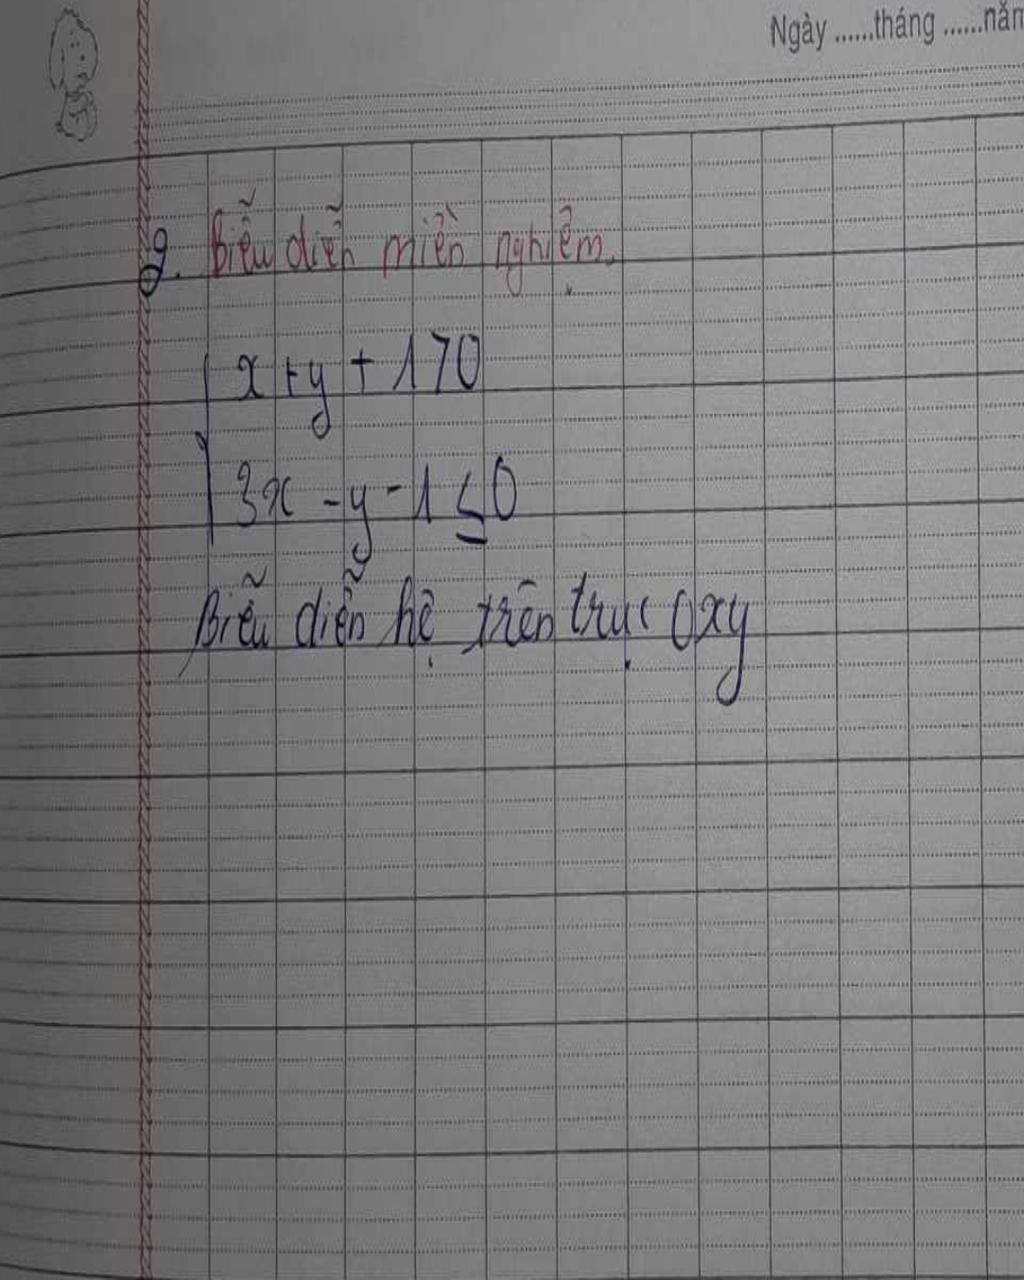 Ngày ......tháng ......năm
9. Biễu diễn miền nghiệm.
x + y + 1 > 0
3x - y - 1 ≤ 0
Biễu diễn hệ trên trục Oxy